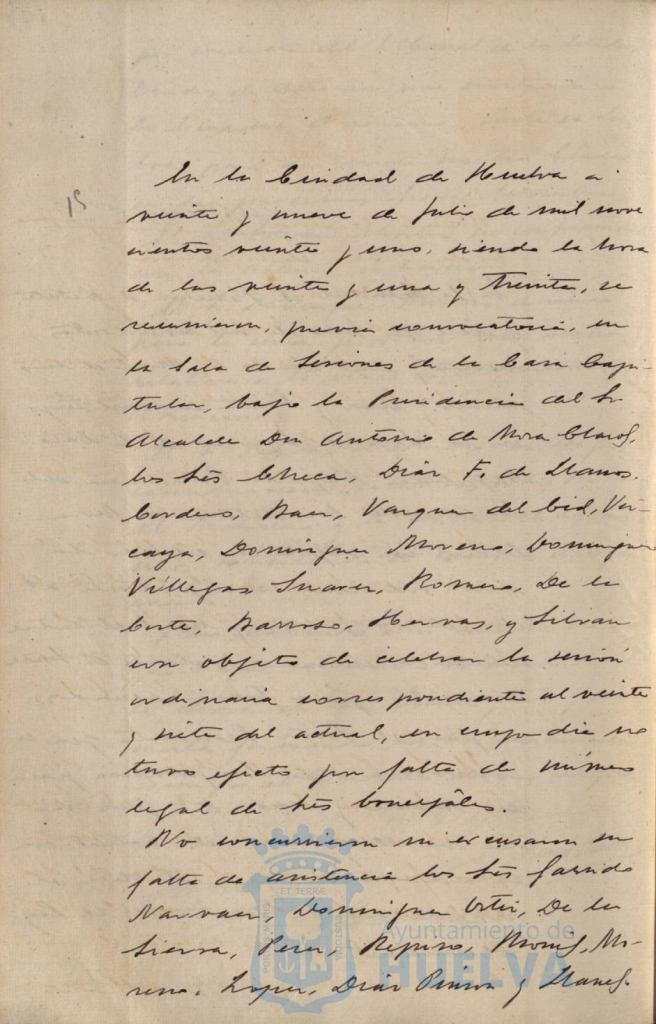 15
En la Ciudad de Huelva a
veinte y nueve de Julio de mil nove
cientos veinte y uno, siendo la hora
de las veinte y una y treinta, se
reunieron, previa convocatoria, en
la Sala de Sesiones de la Casa Capi-
tular, bajo la Presidencia del Sr
Alcalde Don Antonio de Mora Claros,
los Sres Checa, Díaz F. de Llanos,
Cordero, Baer, Vazquez del Cid, Viz-
caya, Domínguez Moreno, Dominguez
Villegas Suarez, Romero, De la
Corte, Barroso, Hervas, y Silvan
con objeto de celebrar la sesión
ordinaria correspondiente al veinte
y siete del actual, en cuyo día no
tuvo efecto por falta de número
legal de Sres Concejales.
No concurrieron ni excusaron su
falta de asistencia los Sres Garrido
Narvaez, Domínguez Ortiz, De la
Sierra, Perez, Repiso, Mo-
reno, Lopez, Díaz Pinzon y Llanes.
PORTUS MARIS
ET TERRÆ
CUSTODIA
Ayuntamiento de
HUELVA